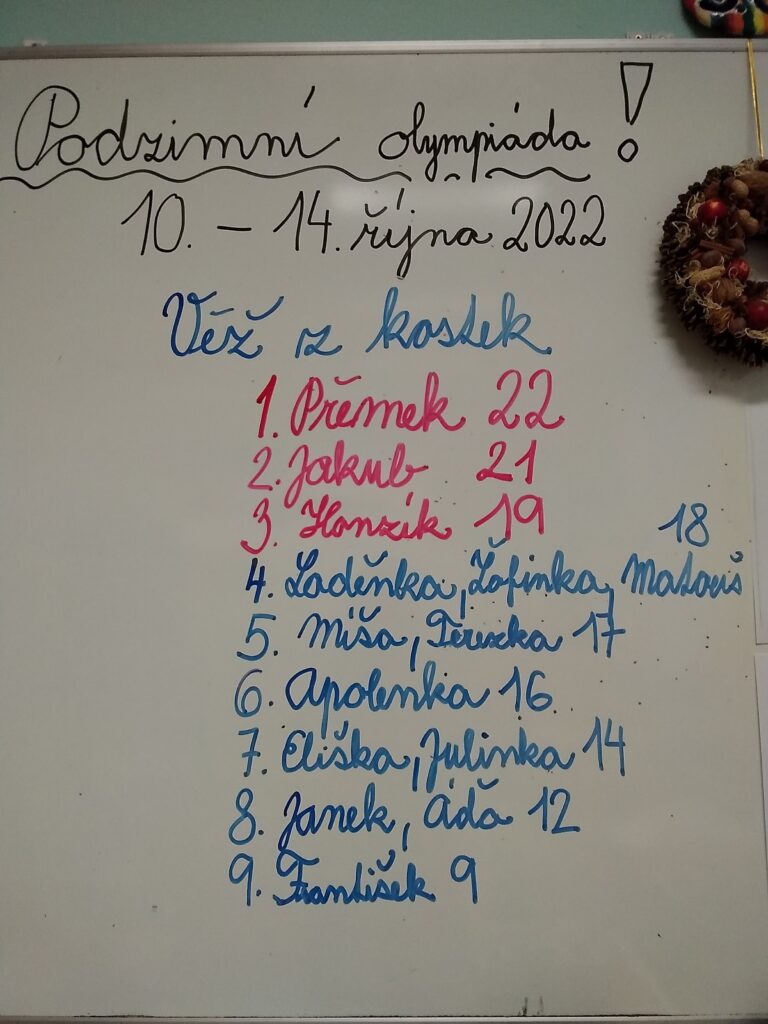 Podzimní olympiáda!
10. – 14. října 2022
Věž z kostek
1. Přemek 22
2. Jakub 21
3. Honzík 19
18
4. Laděnka, Žofinka, Matouš
5. Míša, Terezka 17
6. Apolenka 16
7. Eliška, Julinka 14
8. Janek, Áďa 12
9. František 9